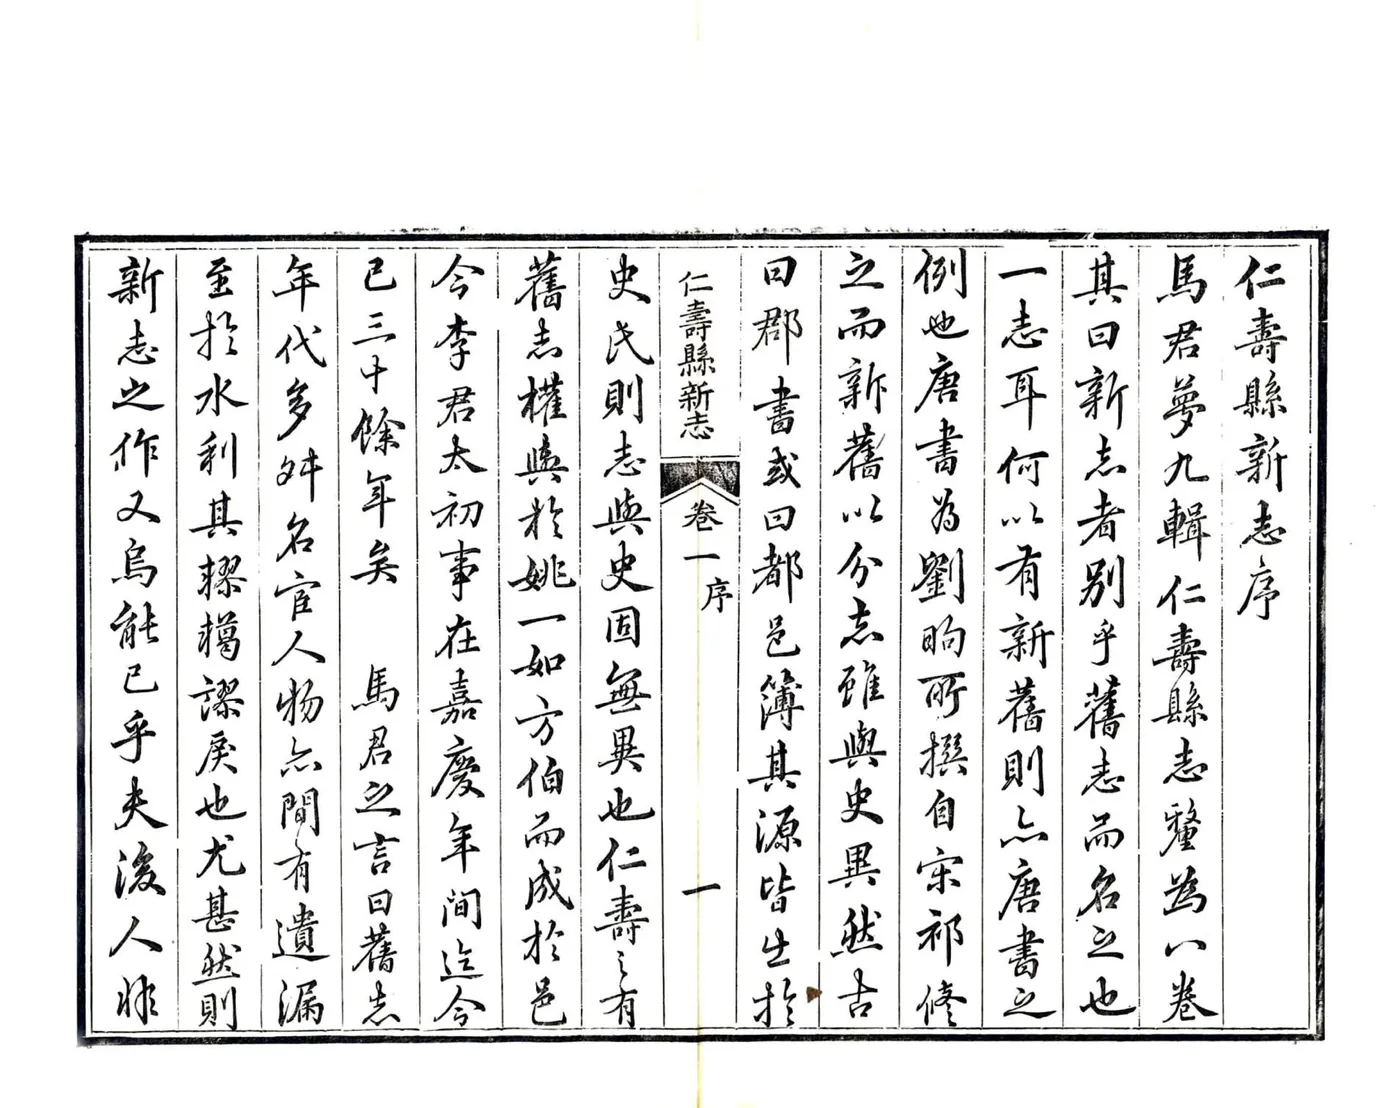 仁壽縣新志序
馬君夢九輯仁壽縣志釐為八卷
其曰新志者別乎舊志而名之也
一志耳何以有新舊則亦唐書之
例也唐書為劉昫所撰自宋祁修
之而新舊以分志雖與史異然古
曰郡書或曰都邑簿其源皆出於
仁壽縣新志
卷一
序
一
史氏則志與史固無異也仁壽之有
舊志權輿於姚一如方伯而成於邑
令李君太初事在嘉慶年間迄今
已三十餘年矣 馬君之言曰舊志
年代多舛名宦人物亦間有遺漏
至於水利其轇轕謬戾也尤甚然則
新志之作又烏能已乎夫後人非